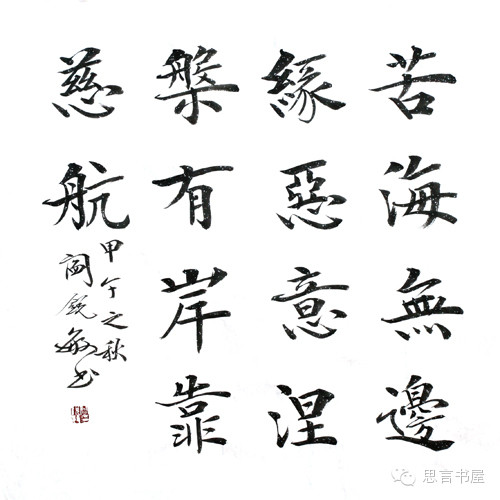 苦海無邊
緣惡意涅
槃有岸靠
慈航
甲午之秋
书
思言书屋